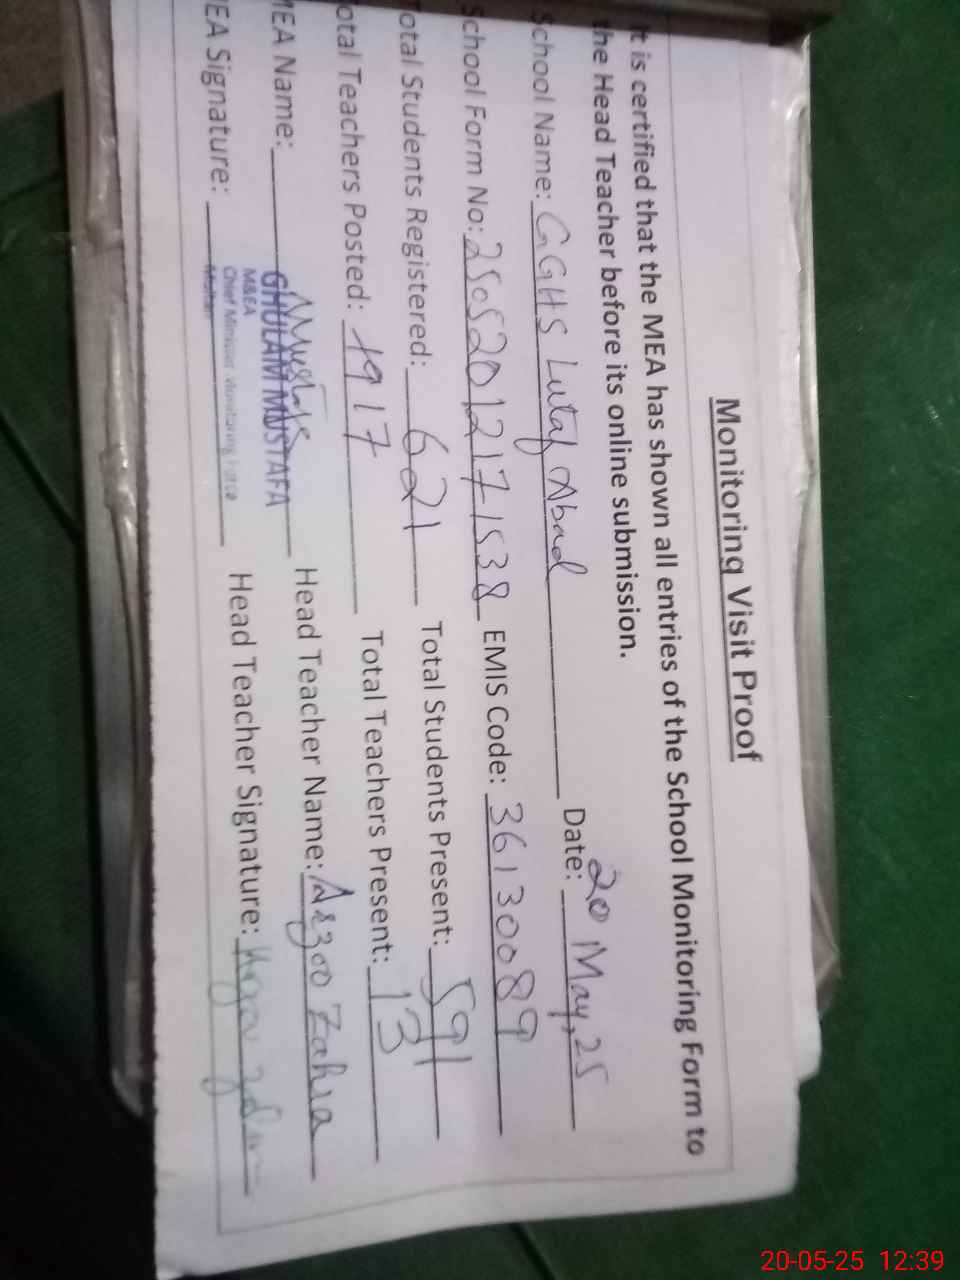 Monitoring Visit Proof
It is certified that the MEA has shown all entries of the School Monitoring Form to
the Head Teacher before its online submission.
School Name: GGHS Lutaf Abad Date: 20 May, 25
School Form No: 25052012171538 EMIS Code: 36130089
Total Students Registered: 621 Total Students Present: 591
otal Teachers Posted: 19 17 Total Teachers Present: 13
MEA Name: GHULAM MUSTAFA Head Teacher Name: Arzoo Zahra
M&EA
Chief Minister Monitoring Force
Multan
EA Signature: Head Teacher Signature:
20-05-25 12:39